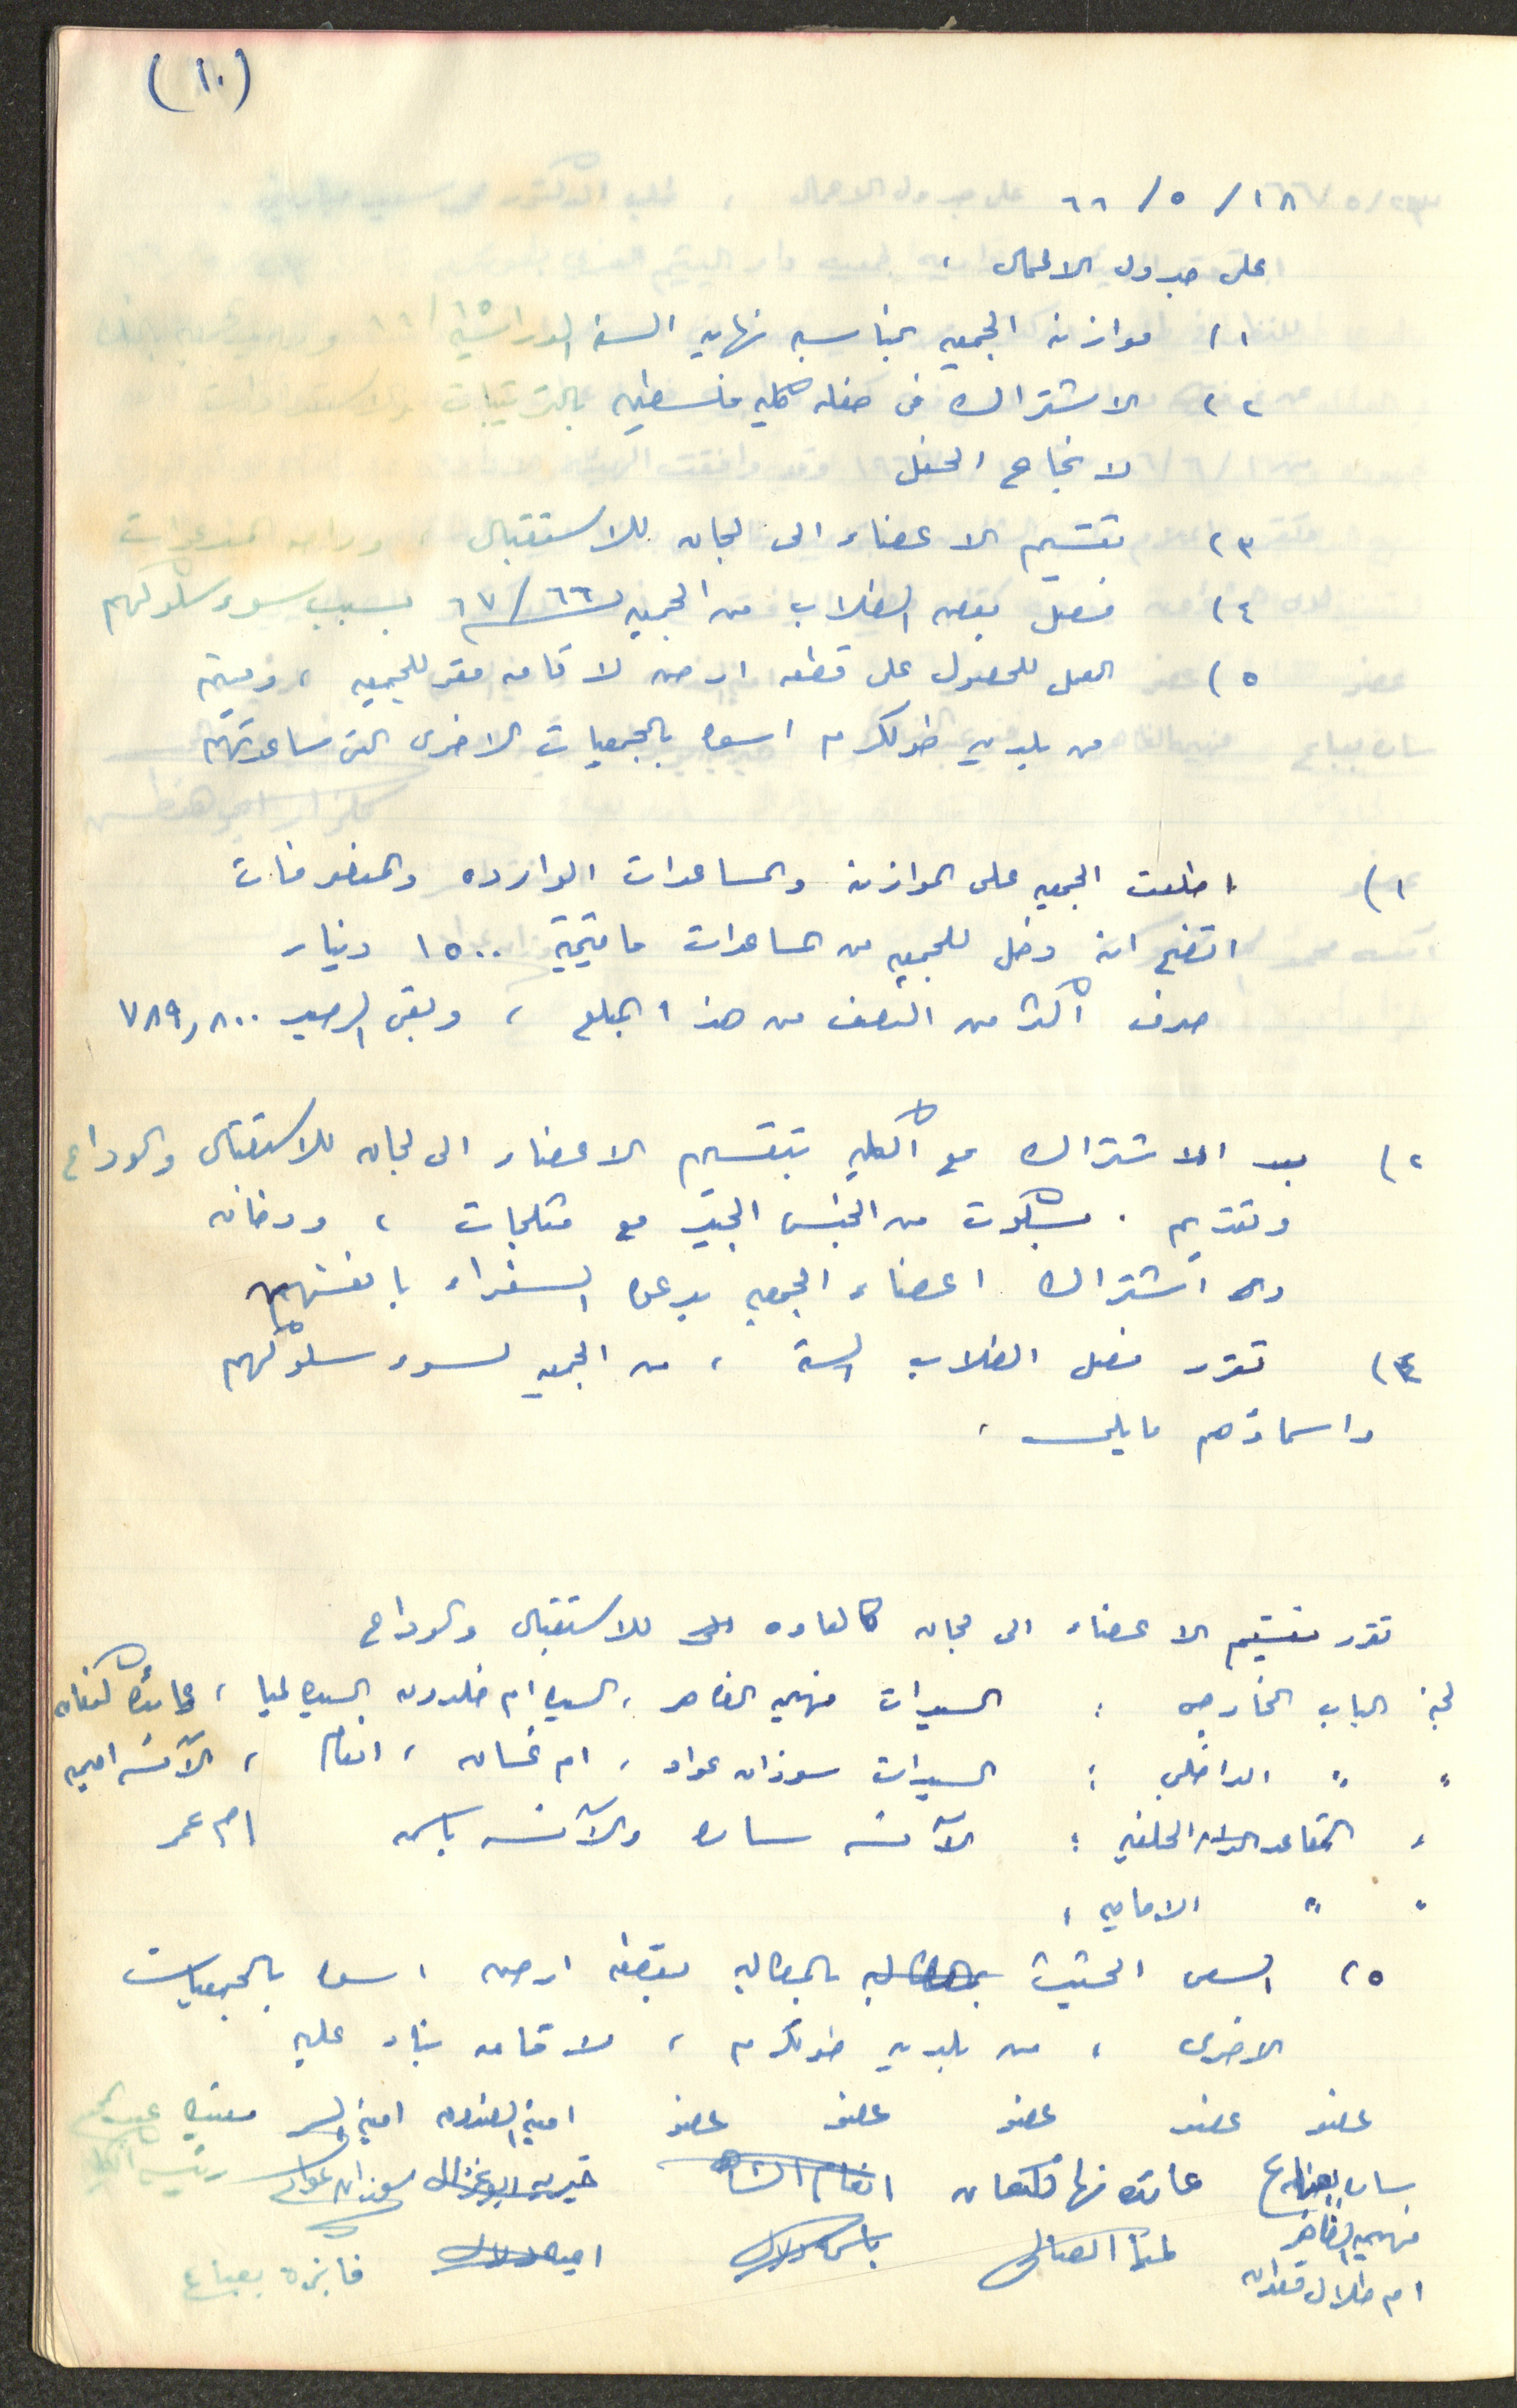 (١٠)
١٨/ ٥/ ٦٦
على جدول الاعمال ،
١) موازنة الجمعيه بمناسبه نهايه السنه الدراسيه ٦٥/ ٦٦
٢) الاشتراك في حفله كليه فلسطين بالترتيبات والاستعدادات
لانجاح الحفل
٣) تقسيم الاعضاء الى لجان للاستقبال ،
٤) فصل بعض الطلاب من الجمعيه ٦٦/ ٦٧ بسبب سوء سلوكهم
٥) العمل للحصول على قطعه ارض لاقامة مقر للجمعيه ،
من بلديه طولكرم اسوه بالجمعيات الاخرى التي ساعدتهم
١) اطلعت الجمعيه على الموازنة والمساعدات الوارده والمصروفات
اتضح انه دخل للجمعيه من المساعدات ما قيمته ١٥٠٠ دينار
صرف اكثر من النصف من هذا المبلغ ، وبقي الرصيد ٧٨٩,٨٠٠
٢) بعد الاشتراك مع الكليه بتقسيم الاعضاء الى لجان للاستقبال والوداع
وتقديم بسكوت من الجنس الجيد مع مثلجات ، ودخان
واشتراك اعضاء الجمعيه بدعوه السفراء بانفسهم
٤) تقرر فصل الطلاب الستة ، من الجمعيه لسوء سلوكهم
واسماؤهم مايلي ،
تقرر تقسيم الاعضاء الى لجان كالعاده للاستقبال والوداع
لجنة الباب الخارجي : السيدات فهميه الظاهر ، السيده ام خلدون السيده لميا ، عائده كنعان
" " الداخلي : السيدات سوزان عواد ، ام غسان ، انعام ، الآنسه اميه
" المقاعد الخلفيه : الآنسه ساره والآنسه باسمه ام عمر
" " الاماميه :
٥) السعي الحثيث بالمطالبه بقطعه ارض اسوه بالجمعيات
الاخرى ، من بلديه طولكرم ، لاقامه بناء عليه
عضو عضو عضو عضو عضو امينة الصندوق امينة السر
عائده كنعان انعام خيريه ابو غزاله سوزان عواد
فهميه الظاهر لميا باسمه اميه فايزه بعباع
ام طلال